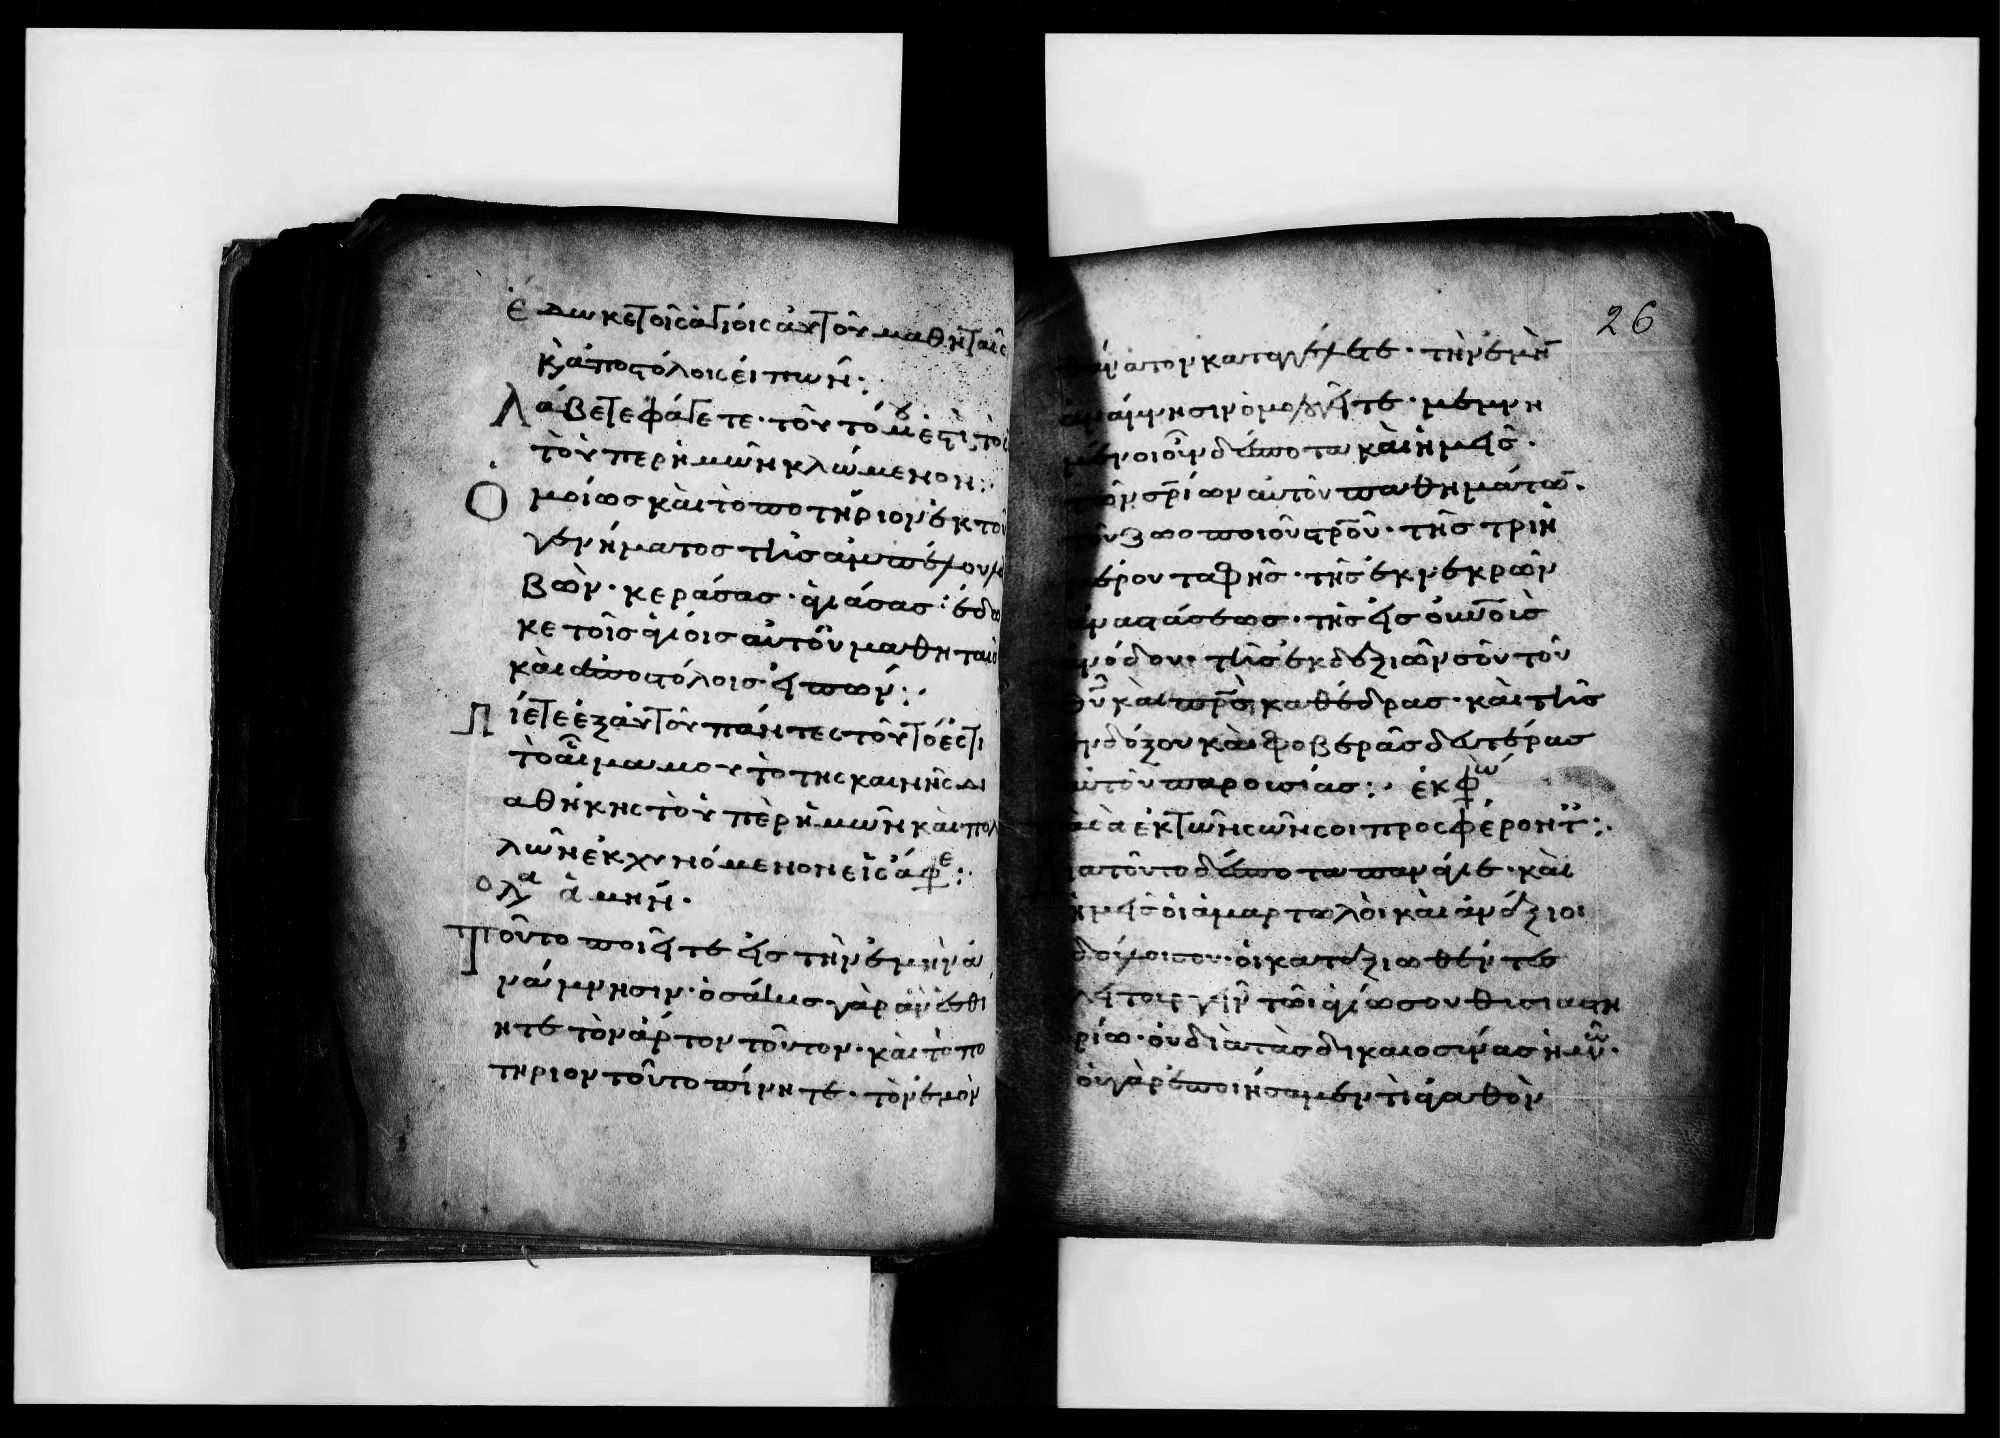 ἔδωκε τοῖς ἁγίοις αὐτοῦ μαθηταῖς
κ(αὶ) ἀποστόλοις εἰπών:
Λάβετε φάγετε· τοῦτό μου ἐστὶ τὸ
τὸ ὑπὲρ ἡμῶν κλώμενον:
Ὁμοίως καὶ τὸ ποτήριον ἐκ τοῦ
γενήματος τῆς ἀμπέλου λα
βὼν· κεράσας· ἁγιάσας· ἔδω
κε τοῖς ἁγίοις αὐτοῦ μαθηταῖς
καὶ ἀποστόλοις εἰπών:
Πίετε ἐξ αὐτοῦ πάντες τοῦτό ἐστι
τὸ αἷμα μου τὸ τῆς καινῆς δι
αθήκης τὸ ὑπὲρ ἡμῶν καὶ πολ
λῶν ἐκχυνόμενον εἰς ἀφε:
ὁ λα ἀμήν.
Τοῦτο ποιεῖτε εἰς τὴν ἐμὴν ἀ
νάμνησιν· ὁσάκις γὰρ ἂν ἐσθί
ητε τὸν ἄρτον τοῦτον· καὶ τὸ πο
τήριον τοῦτο πίνητε· τὸν ἐμὸν
26
θάνατον καταγγέλετε· τὴν ἐμὴν
ἀνάμνησιν ὁμολογεῖτε· μεμνη
μένοι οὖν δέσποτα καὶ ἡμεῖς·
τῶν σρίων αὐτοῦ παθημάτων·
τοῦ ζωοποιοῦ στροῦ· τῆς τριη
μέρου ταφῆς· τῆς ἐκ νεκρῶν
ἀναστάσεως· τῆς εἰς οὐνοὺς
ἀνόδου· τῆς ἐκ δεξιῶν σοῦ τοῦ
θυ καὶ πρς καθέδρας· καὶ τῆς
ἐνδόξου καὶ φοβερᾶς δευτέρας
αὐτοῦ παρουσίας: ἐκφω
τὰ σὰ ἐκ τῶν σῶν σοι προσφέροντ:
Διὰ τοῦτο δέσποτα πανάγιε· καὶ
ἡμεῖς οἱ ἁμαρτωλοὶ καὶ ἀνάξιοι
δοῦλοι σου· οἱ καταξιωθέντες
λειτουργεῖν τῶ ἁγίω σου θυσιαστη
ρίω· οὐ διὰ τὰς δικαιοσύνας ἡμῶν·
οὐ γὰρ ἐποιήσαμέν τι ἀγαθὸν